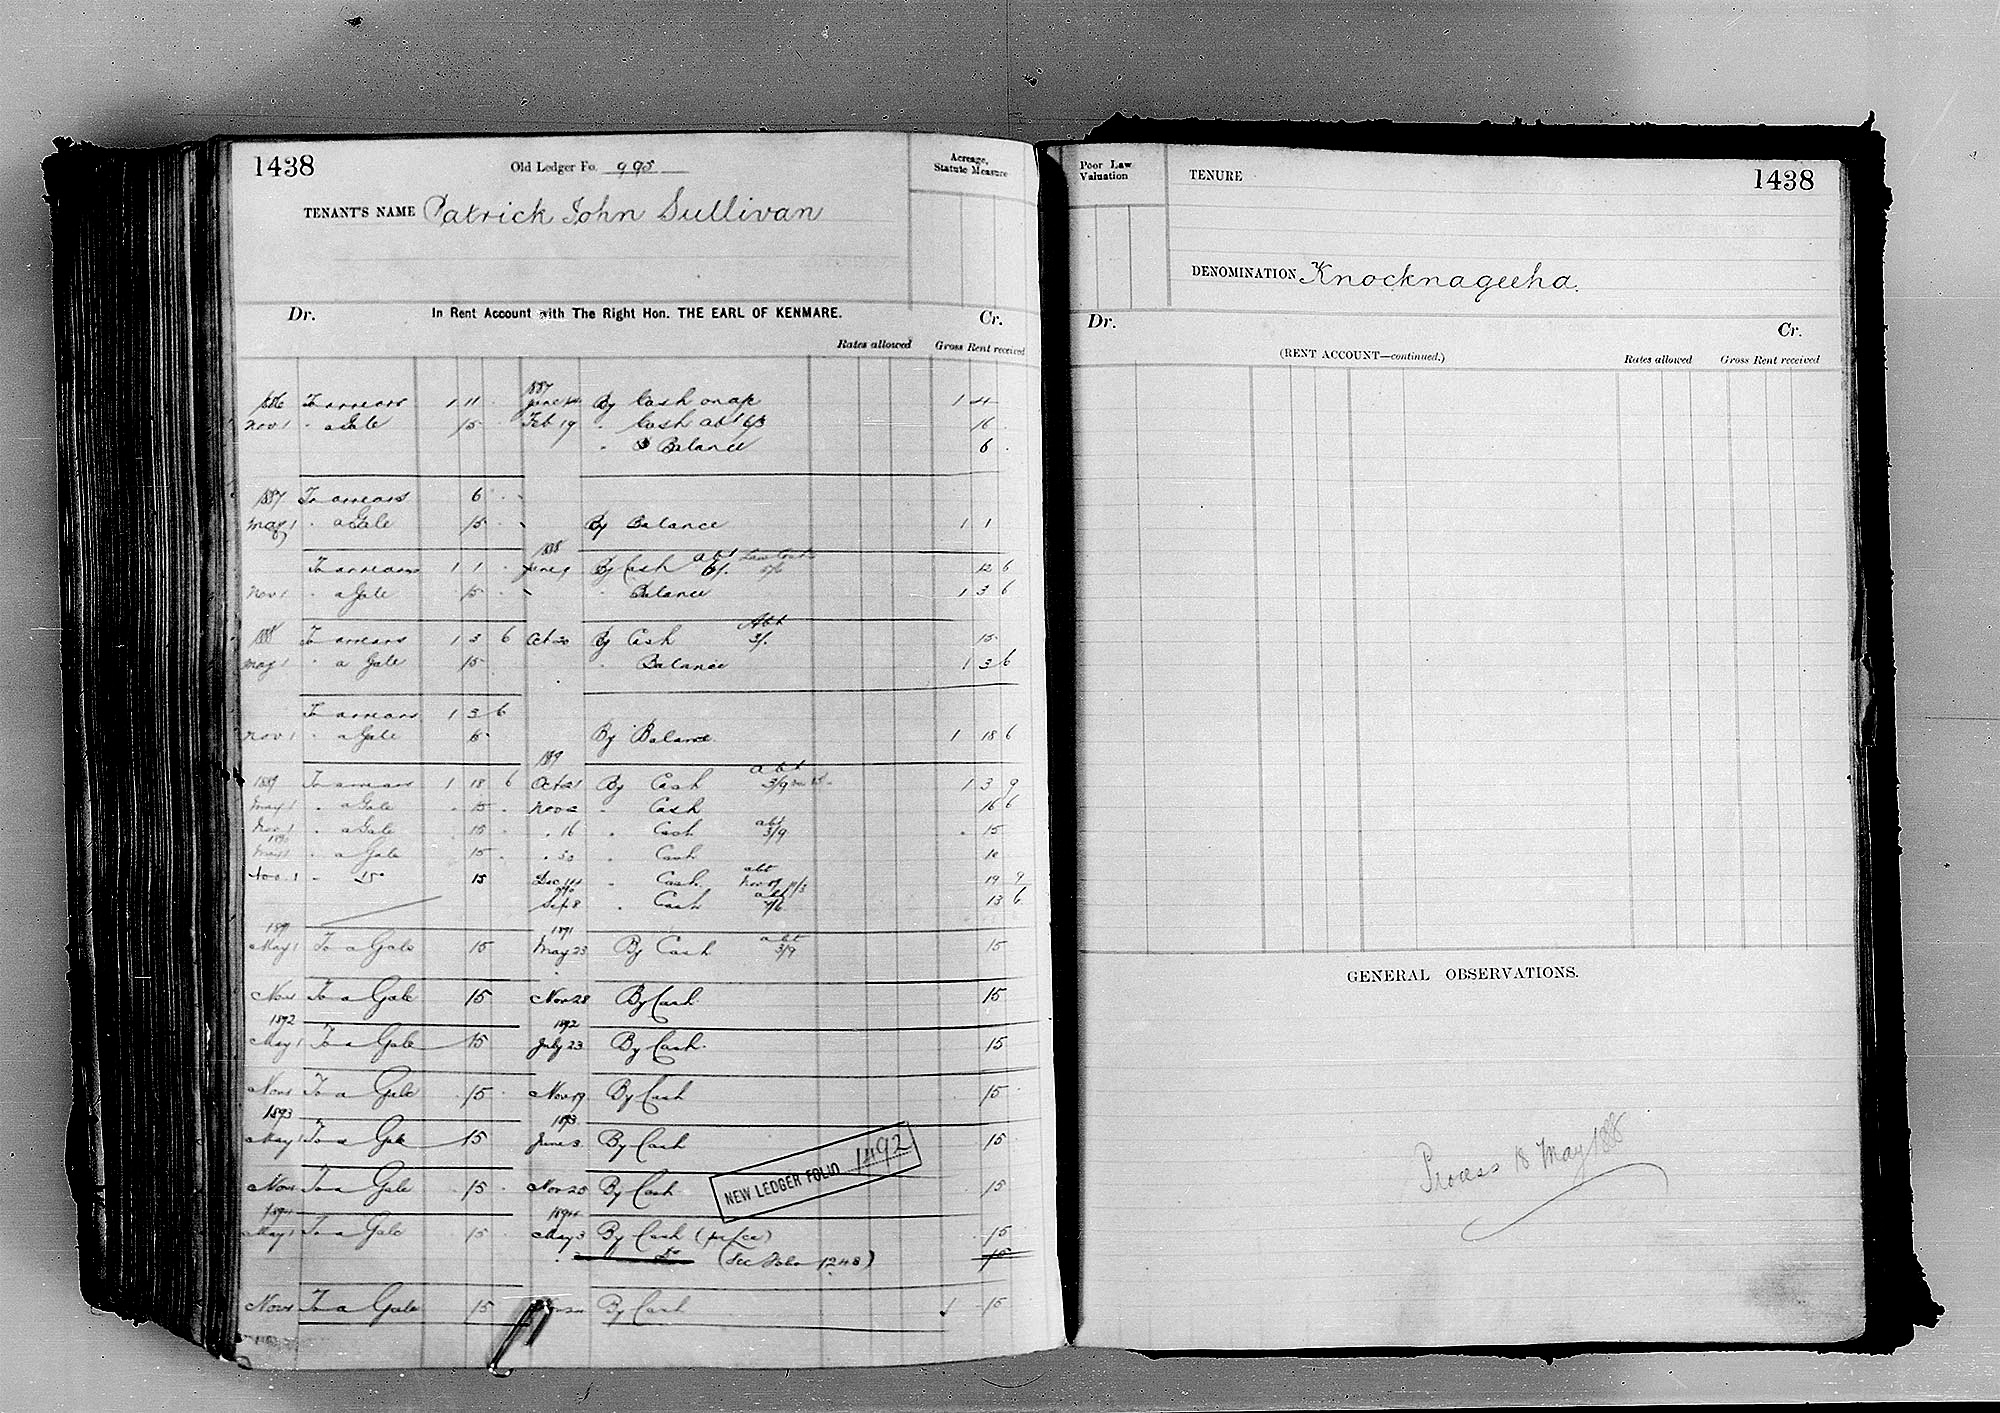 1438
Old Ledger Fo. 995
Acreage,
Statute Measure
TENANT'S NAME Patrick John Sullivan
Dr. In Rent Account with The Right Hon. THE EARL OF KENMARE. Cr.
Rates allowed Gross Rent received
1887
1886 To arrears 1 11 . June 14 By Cash on a/c 1 4
Nov 1 " a Gale 15 . Feb 19 " Cash abt 6/3 16 .
" Balance 6 .
1887 To arrears 6 .
May 1 " a Gale 15 . By Balance 1 1
1888
To arrears 1 1 . June 9 By Cash abt 6/. Law Costs 5/6 12 6
Nov 1 " a Gale 15 . " Balance 1 3 6
1888 To arrears 1 3 6 Oct 20 By Cash Abt 3/. 15
May 1 " a Gale 15 " Balance 1 3 6
To arrears 1 3 6
Nov 1 " a Gale 15 By Balance 1 18 6
1889
1889 To arrears 1 18 6 Oct 21 By Cash abt 3/9 1 3 9
May 1 " a Gale 15 . Nov 2 " Cash 16 6
Nov 1 " a Gale 15 . " 16 " Cash abt 3/9 15
1890
May 1 " a Gale 15 . " 30 " Cash 10
Nov. 1 " Do 15 Dec 14 " Cash abt Nov 89 11/3 19 9
1890
Sep 8 " Cash abt 7/6 13 6
1891 1891
May 1 To a Gale 15 May 23 By Cash abt 3/9 15
Nov 1 To a Gale 15 Nov 28 By Cash 15
1892 1892
May 1 To a Gale 15 July 23 By Cash 15
Nov 1 To a Gale 15 Nov 19 By Cash 15
1893 1893
May 1 To a Gale 15 June 3 By Cash 15
NEW LEDGER FOLIO 1492
Nov 1 To a Gale 15 Nov 25 By Cash 15
1894 1894
May 1 To a Gale 15 May 3 By Cash 15
Do (See Folio 1248) 15
Nov 1 To a Gale 15 By Cash 15
Poor Law
Valuation
TENURE
1438
DENOMINATION Knocknageeha.
Dr. Cr.
(RENT ACCOUNT—continued.) Rates allowed Gross Rent received
GENERAL OBSERVATIONS.
Process 18 May 1886